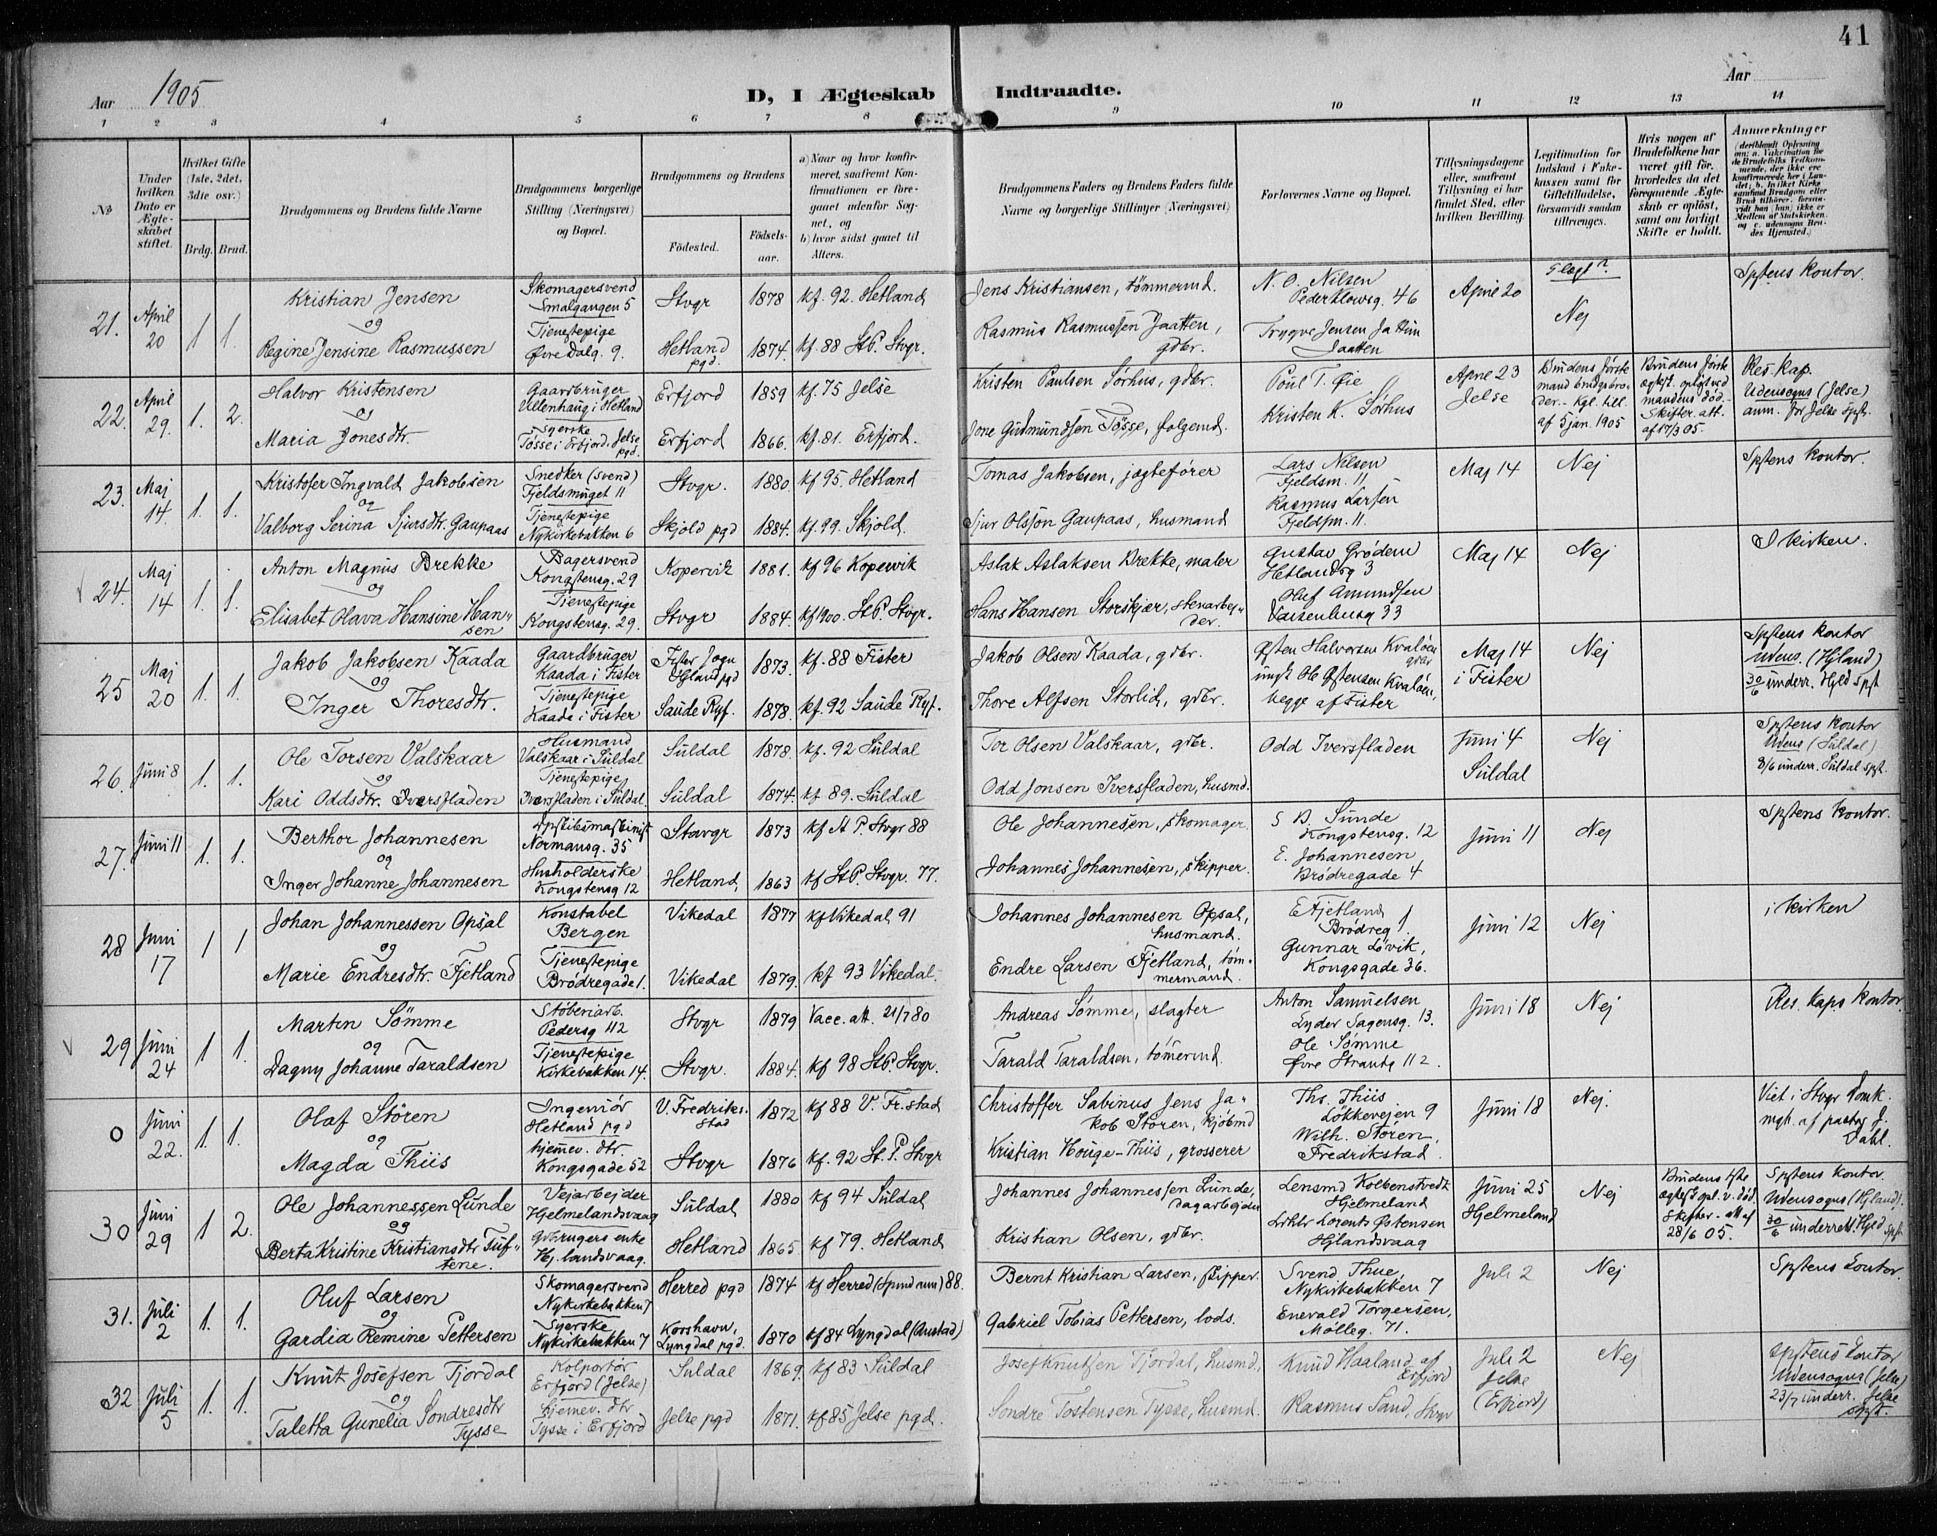 41
Aar 1905
D, I Ægteskab Indtraadte.
Aar
1 2 3 4 5 6 7 8 9 10 11 12 13 14
No
Under hvilken Dato er Ægteskabet stiftet.
Hvilket Gifte (1ste, 2det, 3die osv.)
Brdg. Brud.
Brudgommens og Brudens fulde Navne
Brudgommens borgerlige Stilling (Næringsvei) og Bopæl.
Brudgommens og Brudens
Fødested.
Fødselsaar.
a) Naar og hvor konfirmeret, saafremt Konfirmationen er foregaaet udenfor Sognet, og
b) hvor sidst gaaet til Alters.
Brudgommens Faders og Brudens Faders fulde Navne og borgerlige Stillinger (Næringsvei)
Forlovernes Navne og Bopæl.
Tillysningsdagene eller, saafremt Tillysning ei har fundet Sted, efter hvilken Bevilling.
Legitimation for Indskud i Enkekassen samt for Giftetilladelse, forsaavidt saadan tiltrænges.
Hvis nogen af Brudefolkene har været gift før, hvorledes da det foregaaende Ægteskab er opløst, samt om lovligt Skifte er holdt.
Anmærkninger
21. April 20 1 1.
Kristian Jensen
og
Regine Jensine Rasmussen
Skomagersvend
Smalgangen 5
Tjenestepige
Øvre Dalg. 9.
Stvgr 1878 kf. 92. Hetland
Hetland pgd. 1874. kf. 88 St.P. Stvgr.
Jens Kristiansen, tømmermd.
Rasmus Rasmussen Jaatten, gdbr.
N. O. Nilsen
Pederklowsg. 46
Trygve Jensen Jattun
Jaatten
April 20
Slægt?
Nej
Spstens kontor.
22. April 29. 1. 2.
Halvor Kristensen
og
Maria Jonesdtr.
Gaardbruger
Ullenhaug i Hetland
Syerske
Tøsse i Erfjord. Jelse pgd.
Erfjord 1859 kf. 75 Jelse
Erfjord 1866. kf. 81. Erfjord.
Kristen Paulsen Sørhus, gdbr.
Jone Gudmundsen Tøsse, folgemd.
Poul T. Øie
Kristen K. Sørhus
April 23
Jelse
Brudens første
mand brudgsbroder. - Kgl. till.
af 5 jan. 1905
Brudens første
ægtsk. opløst ved
mandens død. -
Skifter. att.
af 17/3 05.
Res. kap.
Udensogns (Jelse)
anm. for Jelse spst.
23. Maj 14. 1. 1.
Kristofer Ingvald Jakobsen
og
Valborg Serina Sjursdtr. Gaupaas
Snedker (svend)
Fjeldsmuget 11
Tjenestepige
Nykirkebakken 6
Stvgr. 1880. kf 95. Hetland
Skjold pgd 1884. kf. 99. Skjold.
Tomas Jakobsen, jagtefører
Sjur Olsson Gaupaas, husmand
Lars Nilsen
Fjeldsm. 11
Rasmus Larsen
Fjeldsm. 11.
Maj 14
Nej
Spstens kontor.
24. Maj 14 1. 1.
Anton Magnus Brekke
og
Elisabet Olava Hansine Hansen
Bagersvend
Kongstensg. 29
Tjenestepige
Kongstensg. 29.
Kopervik 1881. kf 96 Kopervik
Stvgr 1884. kf 1900. St.P. Stvgr.
Aslak Aslaksen Brekke, maler
Hans Hansen Storskjær, stenarbejder.
Gustav Grødem
Hetlandsg 3
Oluf Amundsen
Vaisenhusg 33
Maj 14
Nej
I kirken.
25 Maj 20 1. 1.
Jakob Jakobsen Kaada
og
Inger Thoresdtr.
Gaardbruger
Kaada i Fister
Tjenestepige
Kaada i Fister
Fister sogn
Hjland pgd 1873. kf. 88 Fister
Saude Ryf. 1878. kf. 92 Saude Ryf.
Jakob Olsen Kaada, gdbr.
Thore Alfsen Storlid, gdbr.
Østen Halvorsen Kvaløen
gdbr
ungk Ole Østensen Kvaløen,
begge af Fister
Maj 14
i Fister
Nej
Spstens kontor
Udens. (Hjland)
30/6 underr. Hjld spst
26. Juni 8 1. 1.
Ole Torsen Valskaar
og
Kari Oddsdtr. Iversfladen
Husmand
Valskaar i Suldal
Tjenestepige
Iversfladen i Suldal.
Suldal 1878. kf. 92 Suldal
Suldal 1874. kf 89. Suldal
Tor Olsen Valskaar, gdbr.
Odd Jonsen Iversfladen, husmd.
Odd Iversfladen
Juni 4
Suldal
Nej
Spstens kontor
Udens (Suldal)
8/6 underr. Suldal spst.
27. Juni 11 1. 1.
Berthor Johannesen
og
Inger Johanne Johannesen
Normansg. 35
Husholderske
Kongstensg 12
Stavgr 1873 kf St P. Stvgr 88
Hetland, 1863 kf St.P. Stvgr. 77.
Ole Johannesen, skomager
Johannes Johannesen, skipper.
S B. Sunde
Kongstensg. 12
E. Johannesen
Brødregade 4
Juni 11
Nej
Spstens kontor.
28 Juni 17 1 1
Johan Johannessen Opsal
og
Marie Endresdtr. Fjetland
Konstabel
Bergen
Tjenestepige
Brødregade 1.
Vikedal 1877 kf Vikedal 91
Vikedal 1879. kf 93 Vikedal.
Johannes Johannesen Opsal,
husmand.
Endre Larsen Fjetland, tømmermand.
E Fjetland
Brødreg 1.
Gunnar Løvik,
Kongsgade 36.
Juni 12
Nej
i kirken
29 Juni 24 1 1.
Martin Sømme
og
Dagny Johanne Taraldsen
Støberiarb.
Pedersg 112
Tjenestepige
Kirkebakken 14.
Stvgr 1879 Vacc. att. 21/7 80
Stvgr. 1884. kf 98 St.P. Stvgr.
Andreas Sømme, slagter
Tarald Taraldsen, tømermd.
Anton Samuelsen
Lyder Sagensg. 13.
Ole Sømme
Øvre Strandg 112.
Juni 18
Nej
Res. kaps kontor.
0 Juni 22. 1. 1.
Olaf Stören
og
Magda Thiis
Ingeniør
Hetland pgd
hjemev. dtr.
Kongsgade 52
V. Fredrikstad 1872 kf 88 V. Fr.stad
Stvgr 1876 kf. 92 St. P. Stvgr
Christoffer Sabinus Jens Jakob Stören, kjøbmd
Kristian Houge-Thiis, grosserer
Ths. Thiis
Løkkevejen 9
Wilh. Stören,
Fredrikstad.
Juni 18
Nej.
Viet i Stvgr Domk.
mgh. af pastor J.
Dahl.
30 Juni 29 1 2.
Ole Johannessen Lunde
og
Berta Kristine Kristiansdtr Tuftene.
Vejarbejder
Hjelmelandsvaag
Gdbrugers enke
Hj.landsvaag.
Suldal 1880 kf 94 Suldal
Hetland 1865 kf 79. Hetland
Johannes Johannessen Lunde,
dagarbejder
Kristian Olsen, gdbr.
Lensmd Kolbenstvedt
Hjelmeland
Lorents Østensen
Hjlandsvaag
Juni 25
Hjelmeland
Nej
Brudens 1ste
ægtesk opl. v. død.
Skifter. att af
28/6 05.
Spstens kontor.
Udensogns (Hjland).
30/6 underrett. Hjld spst.
31. Juli 2 1. 1.
Oluf Larsen
og
Gardia Femine Pettersen
Skomagersvend
Nykirkebakken 7
Syerske
Nykirkebakken 7
Herred pgd 1874 kf Herred (Spind ann) 88.
Korshavn,
Lyngdal pgd. 1870 kf 84 Lyngdal (Austad)
Bernt Kristian Larsen, skipper.
Gabriel Tobias Pettersen, lods.
Svend Thue,
Nykirkebakken 7
Enevald Torgersen,
Mølleg. 71.
Juli 2
Nej
Spstens kontor.
32 Juli 5 1. 1.
Knut Josefsen Tjordal
og
Taletta Gunelia Sondresdtr
Tysse
Kolportør
Erfjord (Jelse)
hjemev. dtr
Tysse i Erfjord
Suldal 1869. kf 83 Suldal
Jelse pgd 1871. kf 85 Jelse pgd.
Josef Knutsen Tjordal, husmd.
Sondre Tostensen Tysse, husmd.
Knud Haaland af
Erfjord
Rasmus Sand, Stvgr
Juli 2
Jelse
(Erfjord)
Nej
Spstens kontor
Udensogns (Jelse)
23/7 underr. Jelse
spst.